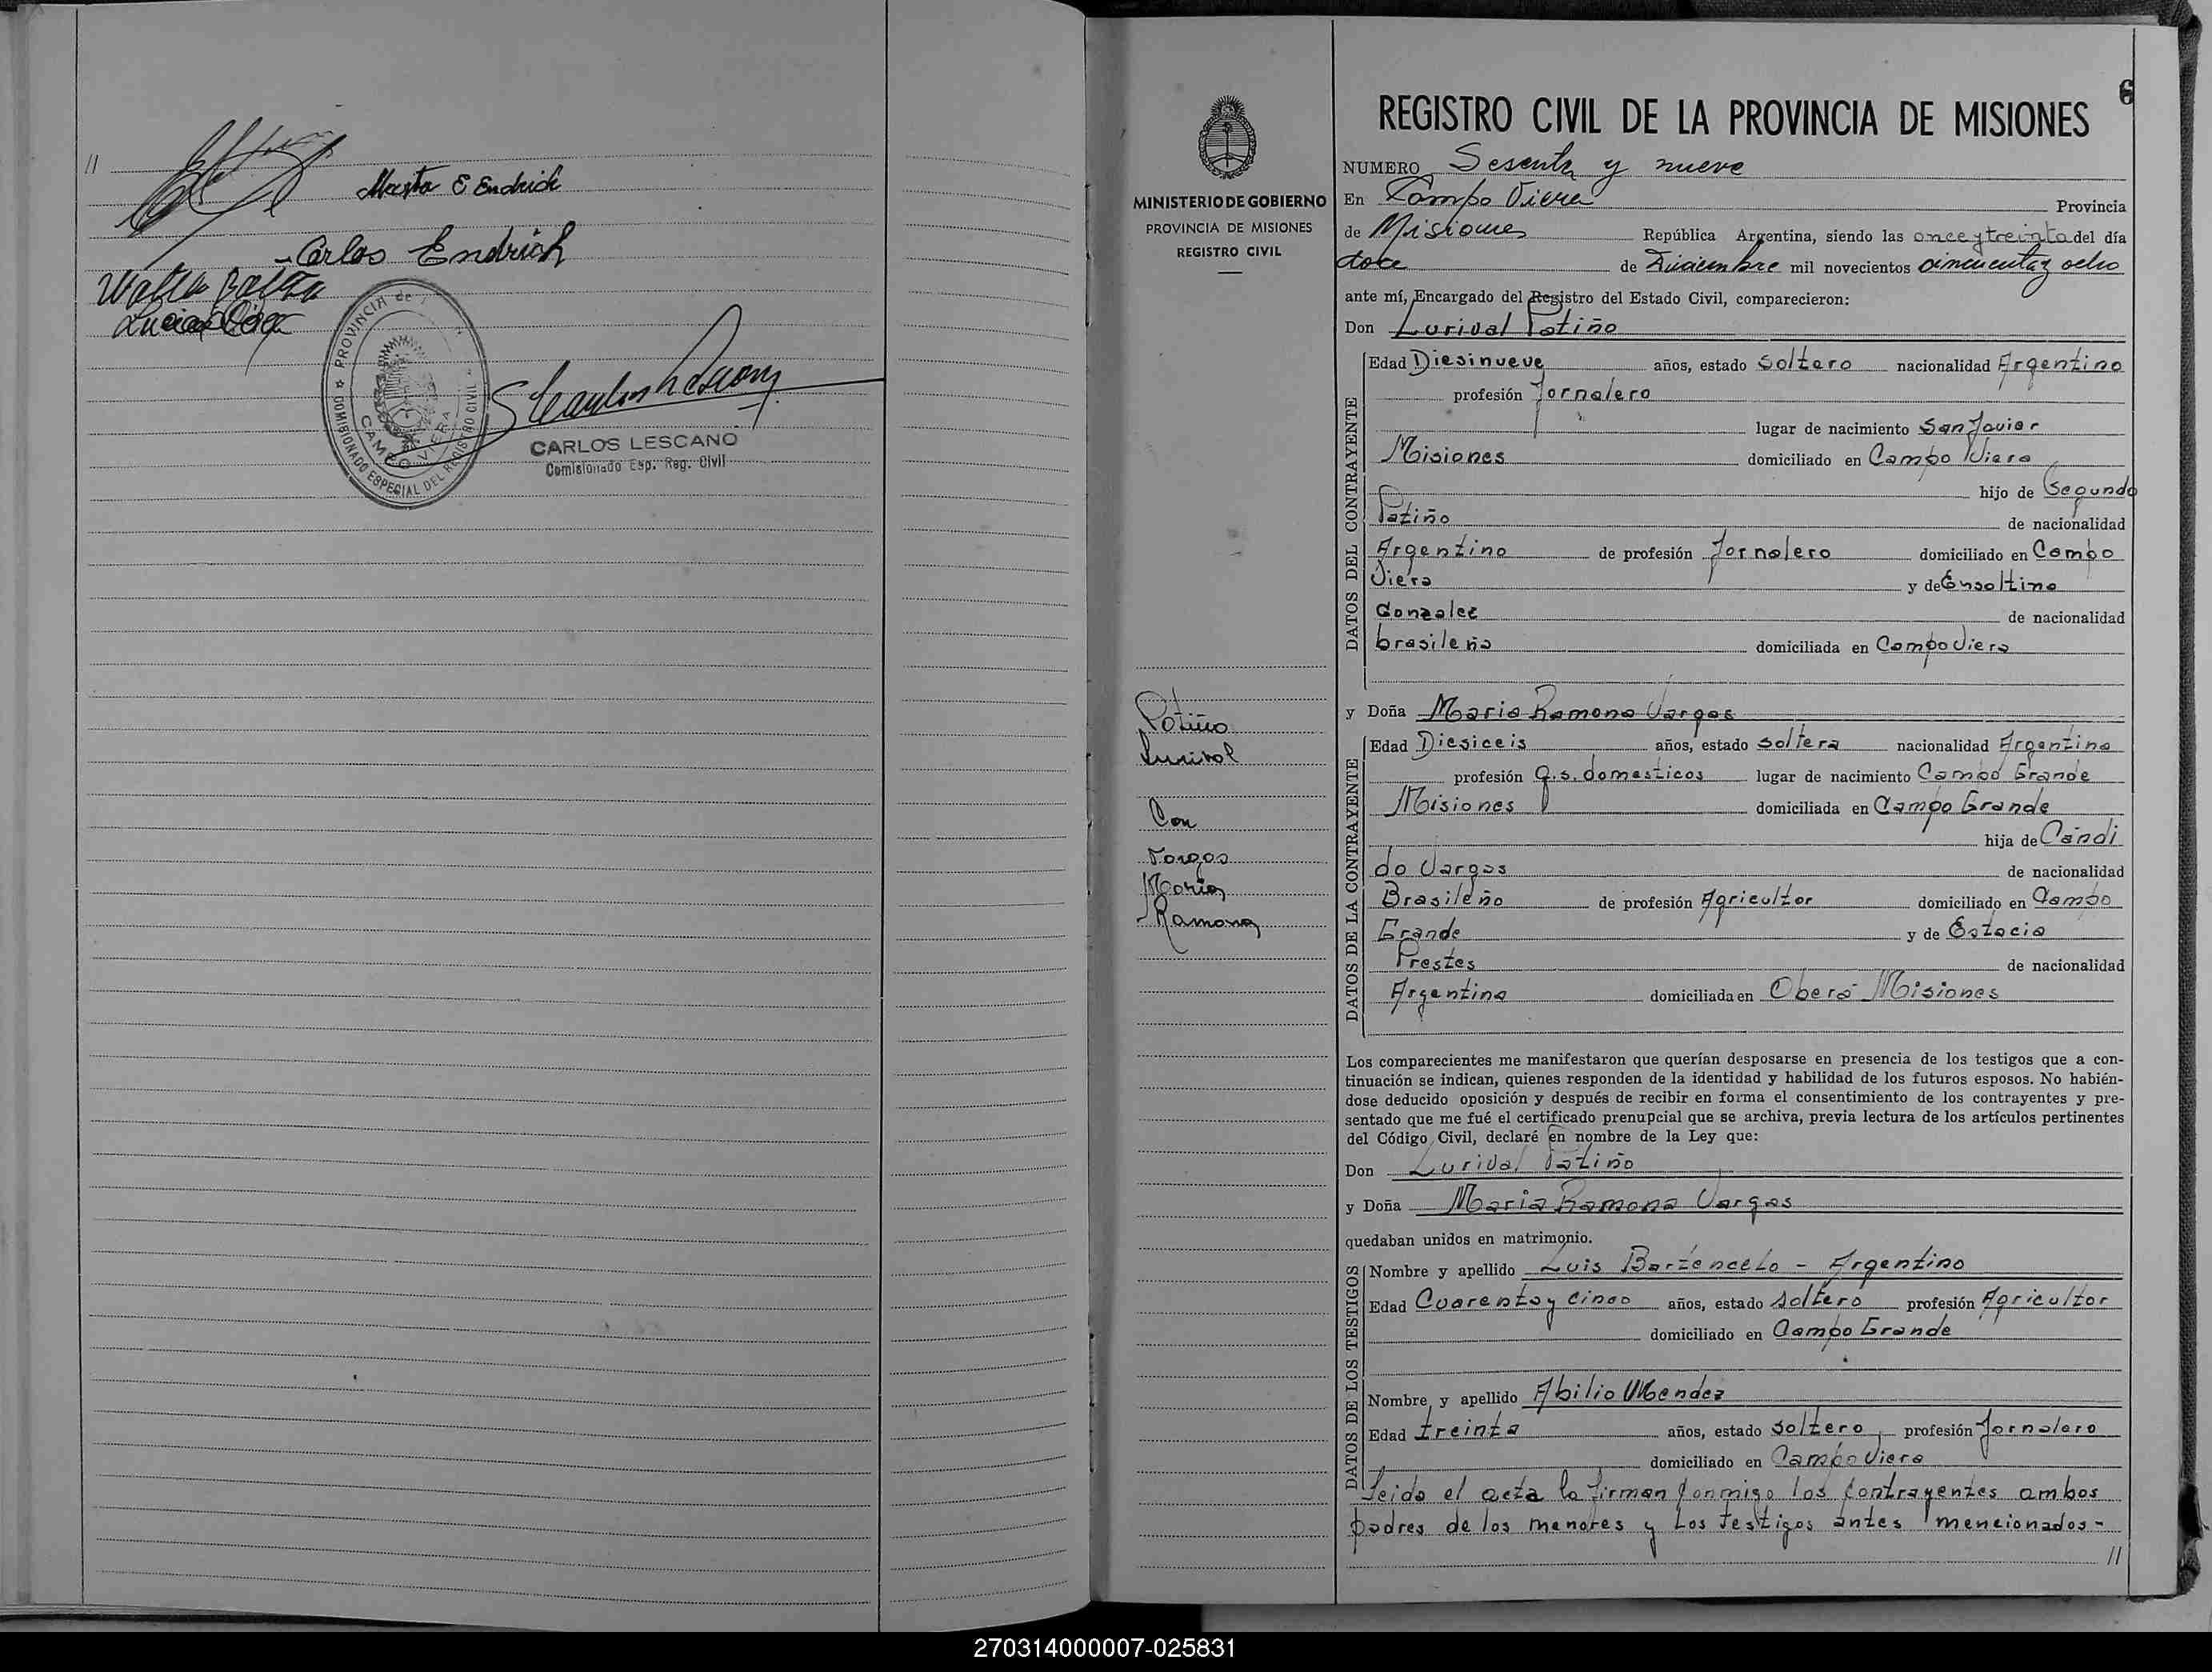 //
Marta E Endrich
- Carlos Endrich
PROVINCIA de
COMISIONADO ESPECIAL DEL REGISTRO CIVIL
CAMPO VIERA
CARLOS LESCANO
Comisionado Esp. Reg. Civil
6
MINISTERIO DE GOBIERNO
PROVINCIA DE MISIONES
REGISTRO CIVIL
Patiño
Lurival
Con
Vargas
Maria
Ramona
REGISTRO CIVIL DE LA PROVINCIA DE MISIONES
NUMERO Sesenta y nueve
En Campo Viera Provincia
de Misiones República Argentina, siendo las once y treinta del día
doce de Diciembre mil novecientos cincuenta y ocho
ante mí, Encargado del Registro del Estado Civil, comparecieron:
Don Lurival Patiño
DATOS DEL CONTRAYENTE
Edad Diesinueve años, estado soltero nacionalidad Argentino
profesión Jornalero
lugar de nacimiento San Javier
Misiones domiciliado en Campo Viera
hijo de Segundo
Patiño de nacionalidad
Argentino de profesión Jornalero domiciliado en Campo
Viera y de Ensoltina
Gonzalez de nacionalidad
brasileña domiciliada en Campo Viera
y Doña Maria Ramona Vargas
DATOS DE LA CONTRAYENTE
Edad Diesiceis años, estado soltera nacionalidad Argentina
profesión q.s. domesticos lugar de nacimiento Campo Grande
Misiones domiciliada en Campo Grande
hija de Cándi
do Vargas de nacionalidad
Brasileño de profesión Agricultor domiciliado en Campo
Grande y de Estacia
Prestes de nacionalidad
Argentina domiciliada en Oberá Misiones
Los comparecientes me manifestaron que querían desposarse en presencia de los testigos que a con-
tinuación se indican, quienes responden de la identidad y habilidad de los futuros esposos. No habién-
dose deducido oposición y después de recibir en forma el consentimiento de los contrayentes y pre-
sentado que me fué el certificado prenupcial que se archiva, previa lectura de los artículos pertinentes
del Código Civil, declaré en nombre de la Ley que:
Don Lurival Patiño
y Doña Maria Ramona Vargas
quedaban unidos en matrimonio.
DATOS DE LOS TESTIGOS
Nombre y apellido Luis Bartencelo - Argentino
Edad Cuarenta y cinco años, estado soltero profesión Agricultor
domiciliado en Campo Grande
Nombre y apellido Abilio Mendez
Edad treinta años, estado soltero, profesión Jornalero
domiciliado en Campo Viera
Leida el acta la firman conmigo los contrayentes ambos
padres de los menores y los testigos antes mencionados-
//
270314000007-025831